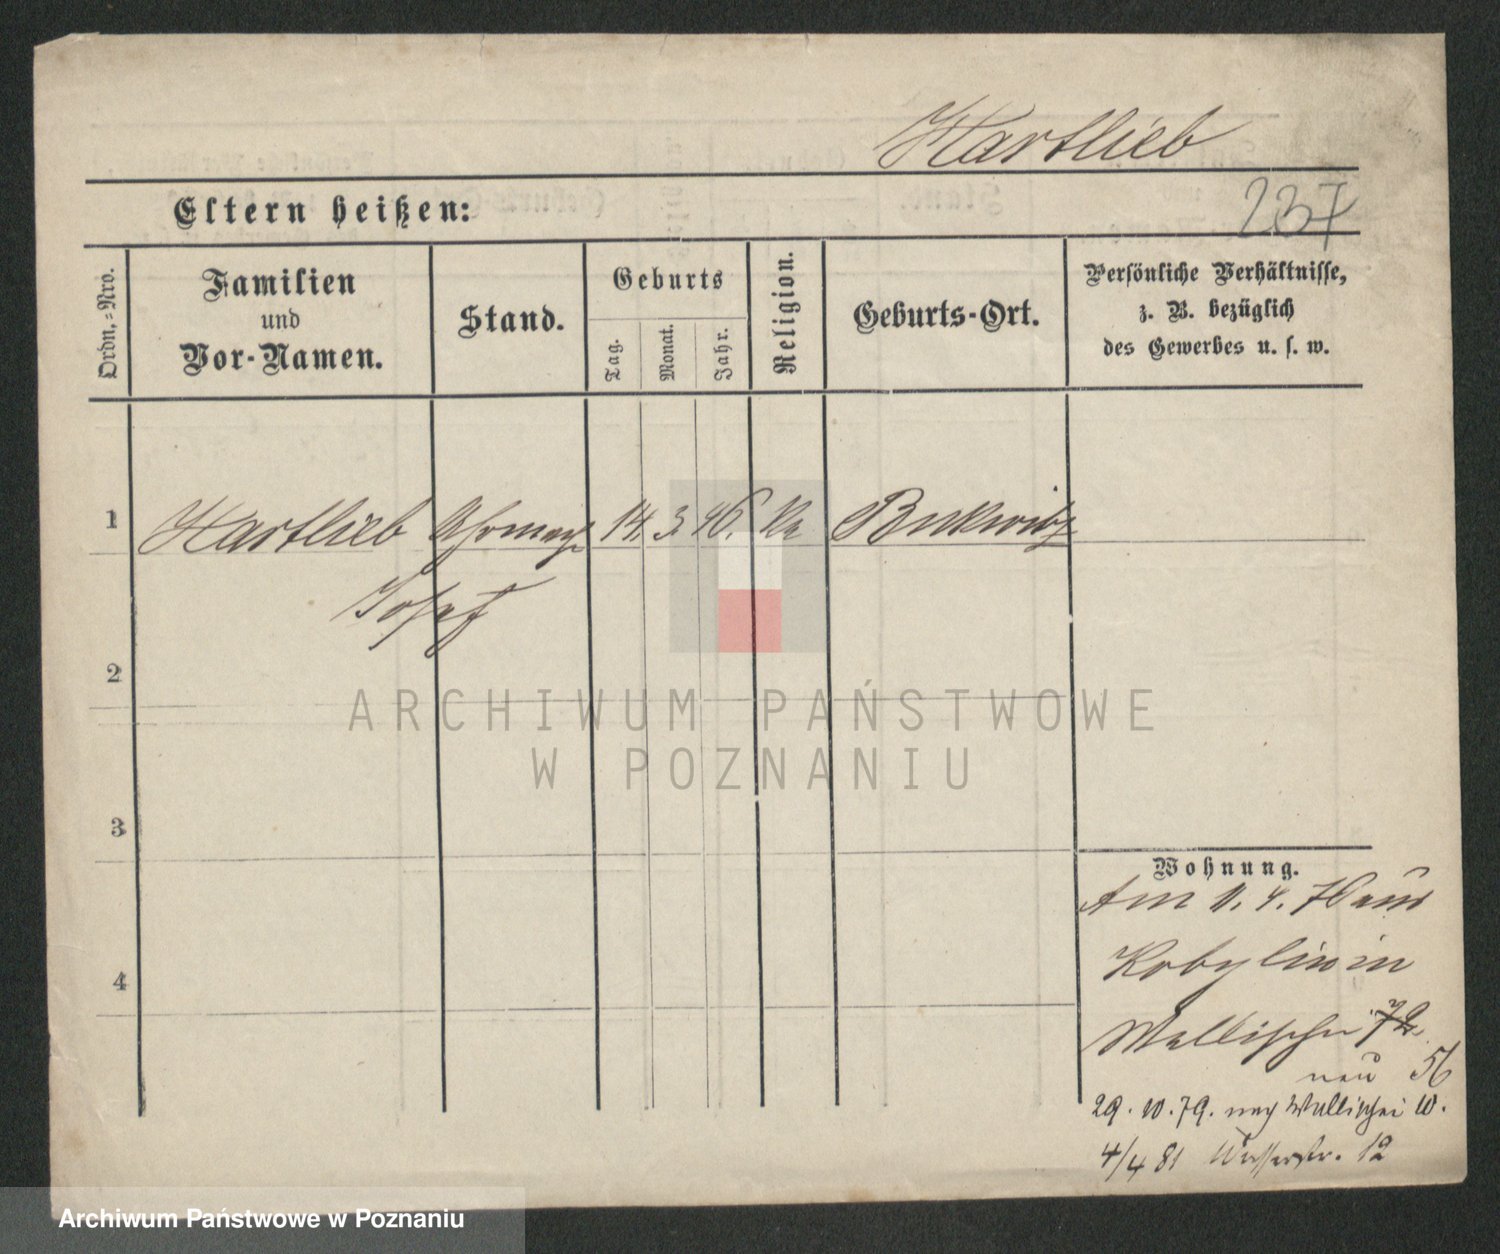 Hartlieb
237
Eltern heißen:
Ordn.-Nro.
Familien
und
Vor-Namen.
Stand.
Geburts
Tag.
Monat.
Jahr.
Religion.
Geburts-Ort.
Persönliche Verhältnisse,
z. B. bezüglich
des Gewerbes u. s. w.
1 Hartlieb Uhrmach 14. 3. 46. Ka Bukwitz
Josef
2
3
4
Wohnung.
Am 11. 4. 78 aus
Kobylin in
Wallischei 72
neu 56
29. 10. 79. nach Wallischei 10.
4/4 81 Wasserstr. 12
ARCHIWUM PAŃSTWOWE
W POZNANIU
Archiwum Państwowe w Poznaniu